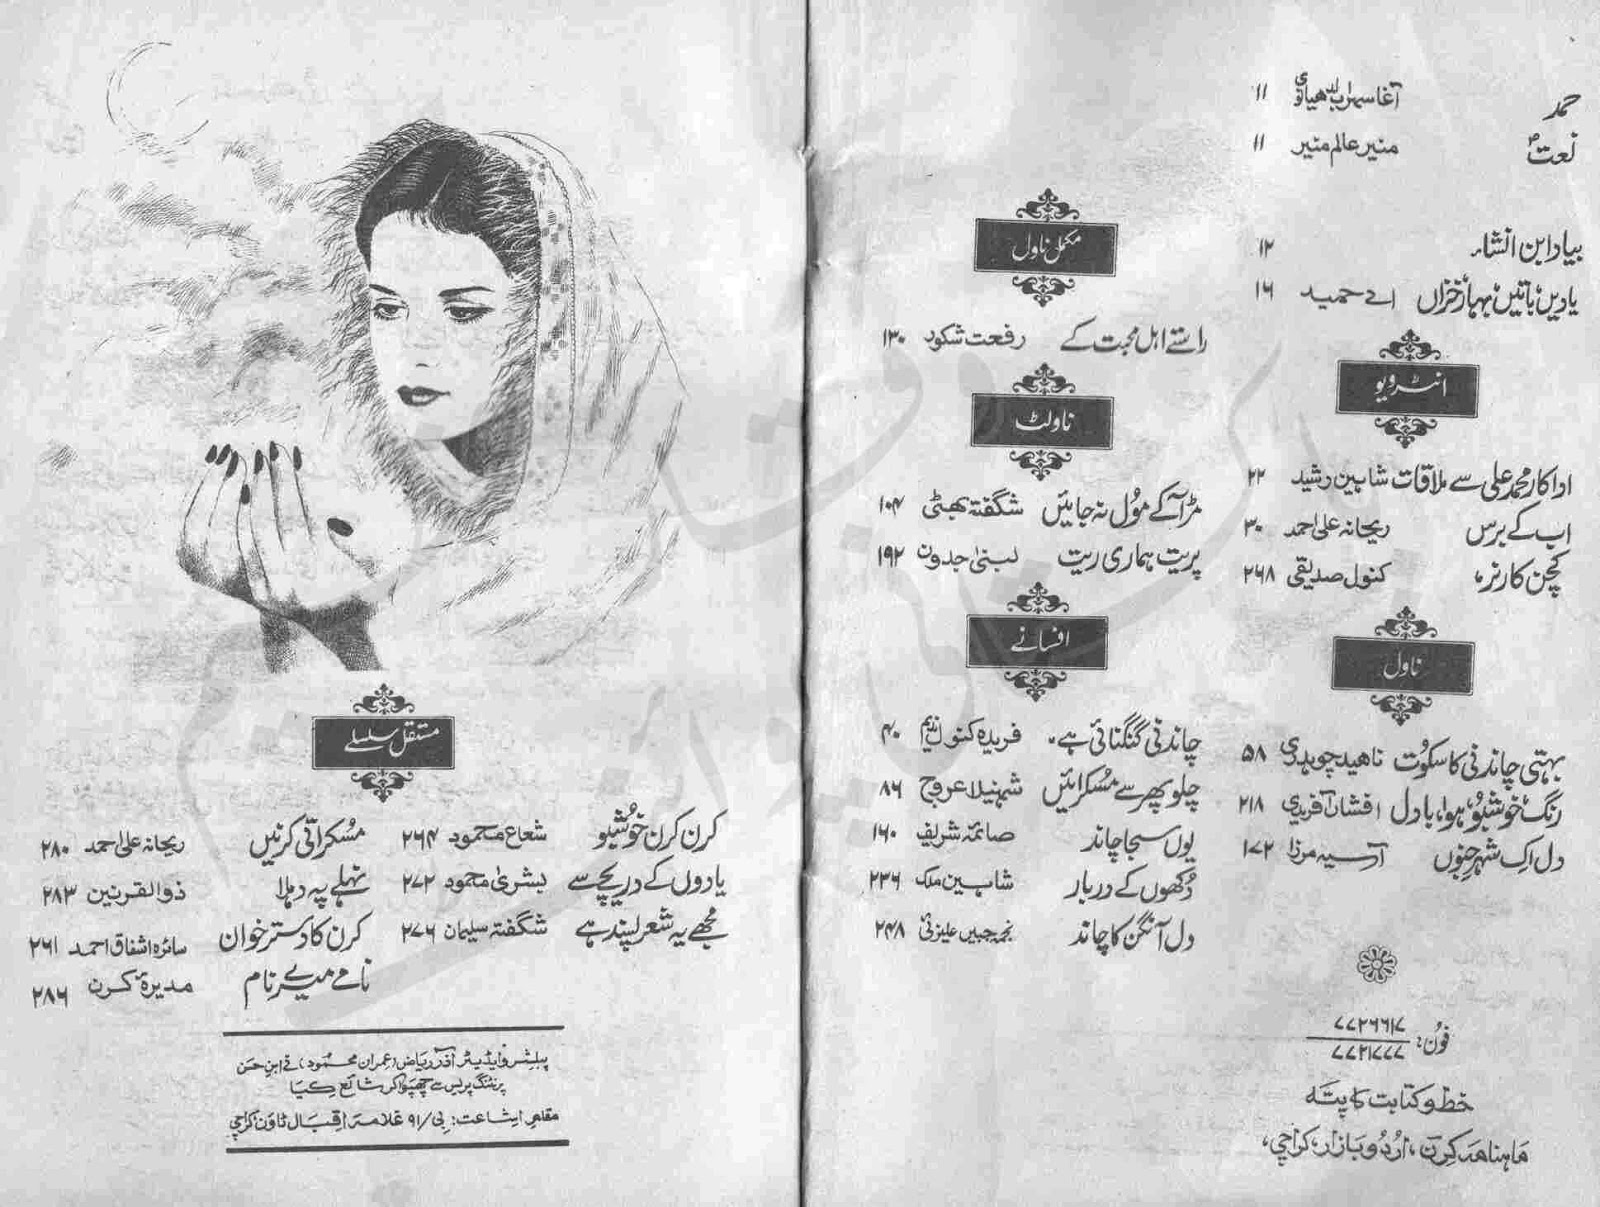 حمد آغا سہراب لدھیانوی ۱۱
نعت منیر عالم منیر ۱۱
بیاد ابن انشاء ۱۲
یادیں باتیں بہار خزاں اے حمید ۱۶
انٹرویو
اداکار محمد علی سے ملاقات شاہین رشید ۲۲
اب کے برس ریحانہ علی احمد ۳۰
کچن کارنر، کنول صدیقی ۲۶۸
ناول
بہتی چاندنی کا سکوت ناھید چوہدری ۵۸
رنگ، خوشبو، ہوا، بادل افشاں آفریدی ۲۱۸
دل اک شہر جنوں آسیہ مرزا ۱۷۲
فون: ۷۷۲۶۶۱۷
۷۷۲۱۷۷۷
خط و کتابت کا پتہ
ماہنامہ کرن، اردو بازار، کراچی،
مکمل ناول
راستے اہل محبت کے رفعت شکور ۱۳۰
ناولٹ
مڑ آ کے مول نہ جائیں شگفتہ بھٹی ۱۰۴
پریت ہماری ریت لبنیٰ جدون ۱۹۲
افسانے
چاندنی گنگنائی ہے۔ فریدہ کنول ندیم ۴۰
چلو پھر سے مسکرائیں شہنیلا عروج ۸۶
یوں سجا چاند صائمہ شریف ۱۶۰
دکھوں کے دربار شاہین ملک ۲۳۶
دل آنگن کا چاند نجمہ جبیں علیزئی ۲۴۸
مستقل سلسلے
کرن کرن خوشبو شعاع محمود ۲۶۴
یادوں کے دریچے سے بشریٰ محمود ۲۷۲
مجھے یہ شعر پسند ہے شگفتہ سلیمان ۲۷۶
مسکراتی کرنیں ریحانہ علی احمد ۲۸۰
نہلے پہ دہلا ذوالقرنین ۲۸۳
کرن کا دسترخوان سائرہ اشفاق احمد ۲۶۱
نامے میرے نام مدیرہ کرن ۲۸۶
پبلشر و ایڈیٹر آذر ریاض (عمران محمود) نے ابن حسن
پرنٹنگ پریس سے چھپوا کر شائع کیا
مقام اشاعت: بی/۹۱ علامہ اقبال ٹاؤن کراچی